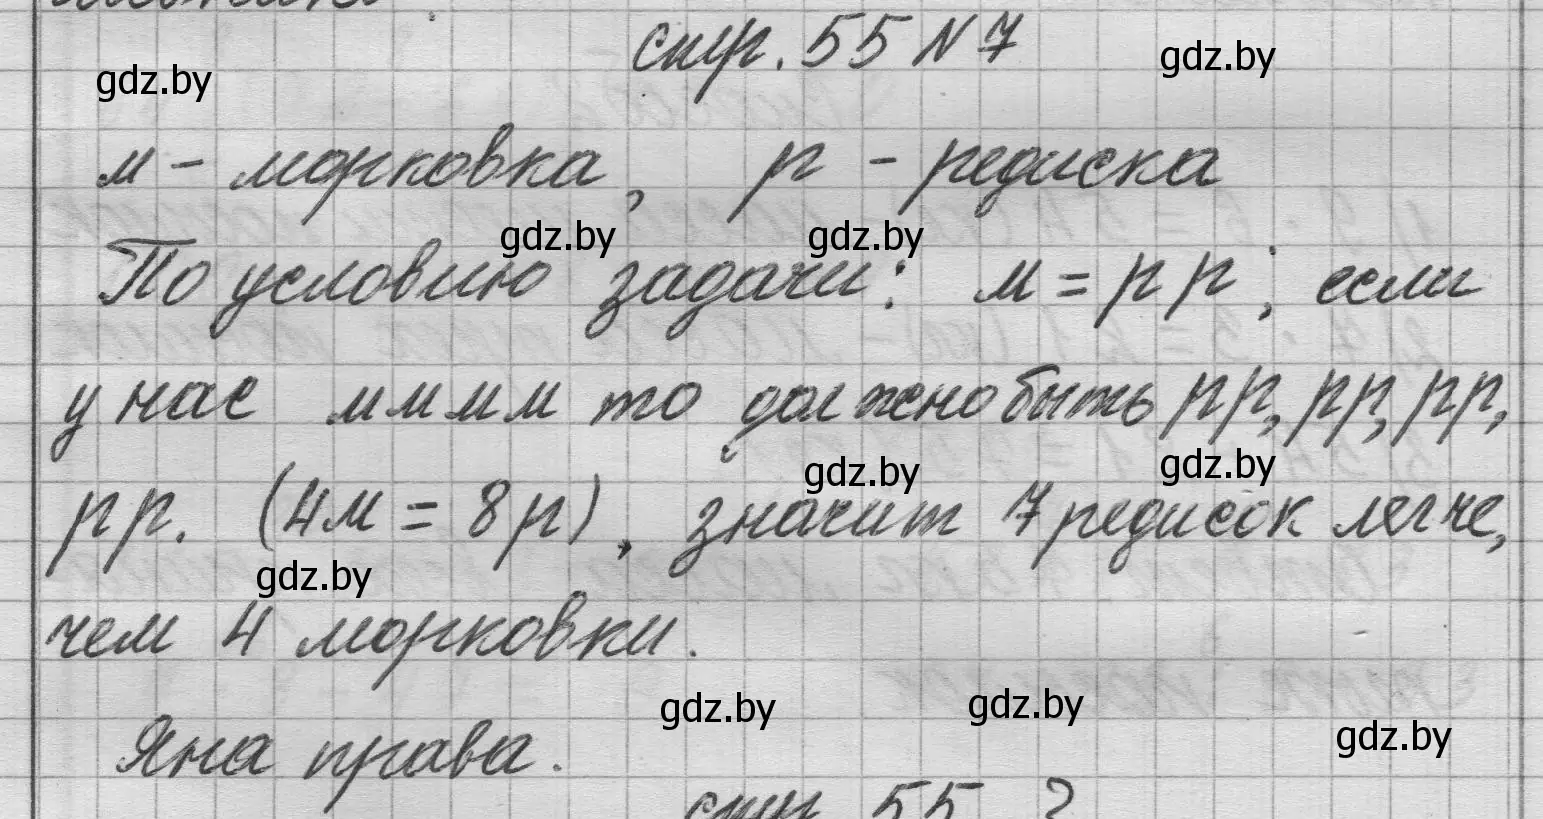 стр. 55 N 7
gdz.by
gdz.by
м - морковка, р - редиска
gdz.by gdz.by
По условию задачи: м = р р; если
у нас м м м м то должно быть рр, рр, рр,
gdz.by gdz.by
рр. (4м = 8р), значит 7 редисок легче,
gdz.by
чем 4 морковки.
gdz.by gdz.by gdz.by
Яна права.
стр. 55 ?